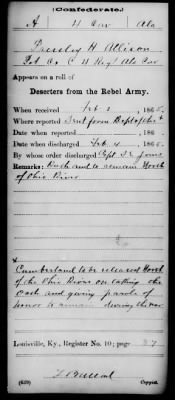 (Confederate.)
A 4 Cav Ala
Pressley H Allison
Pvt Co C 4 Regt Ala Cav
Appears on a roll of
Deserters from the Rebel Army.
When received Feb 2, 1865.
Where reported Sent from
Date when reported , 186 .
Date when discharged Feb 4, 1865.
By whose order discharged Capt S E Jones
Remarks: Oath and to remain North
of Ohio River
Cumberland to be released North
of the Ohio River on taking the
oath and giving parole of
honor to remain during the war
Louisville, Ky., Register No. 10; page 37
(639) Copyist.